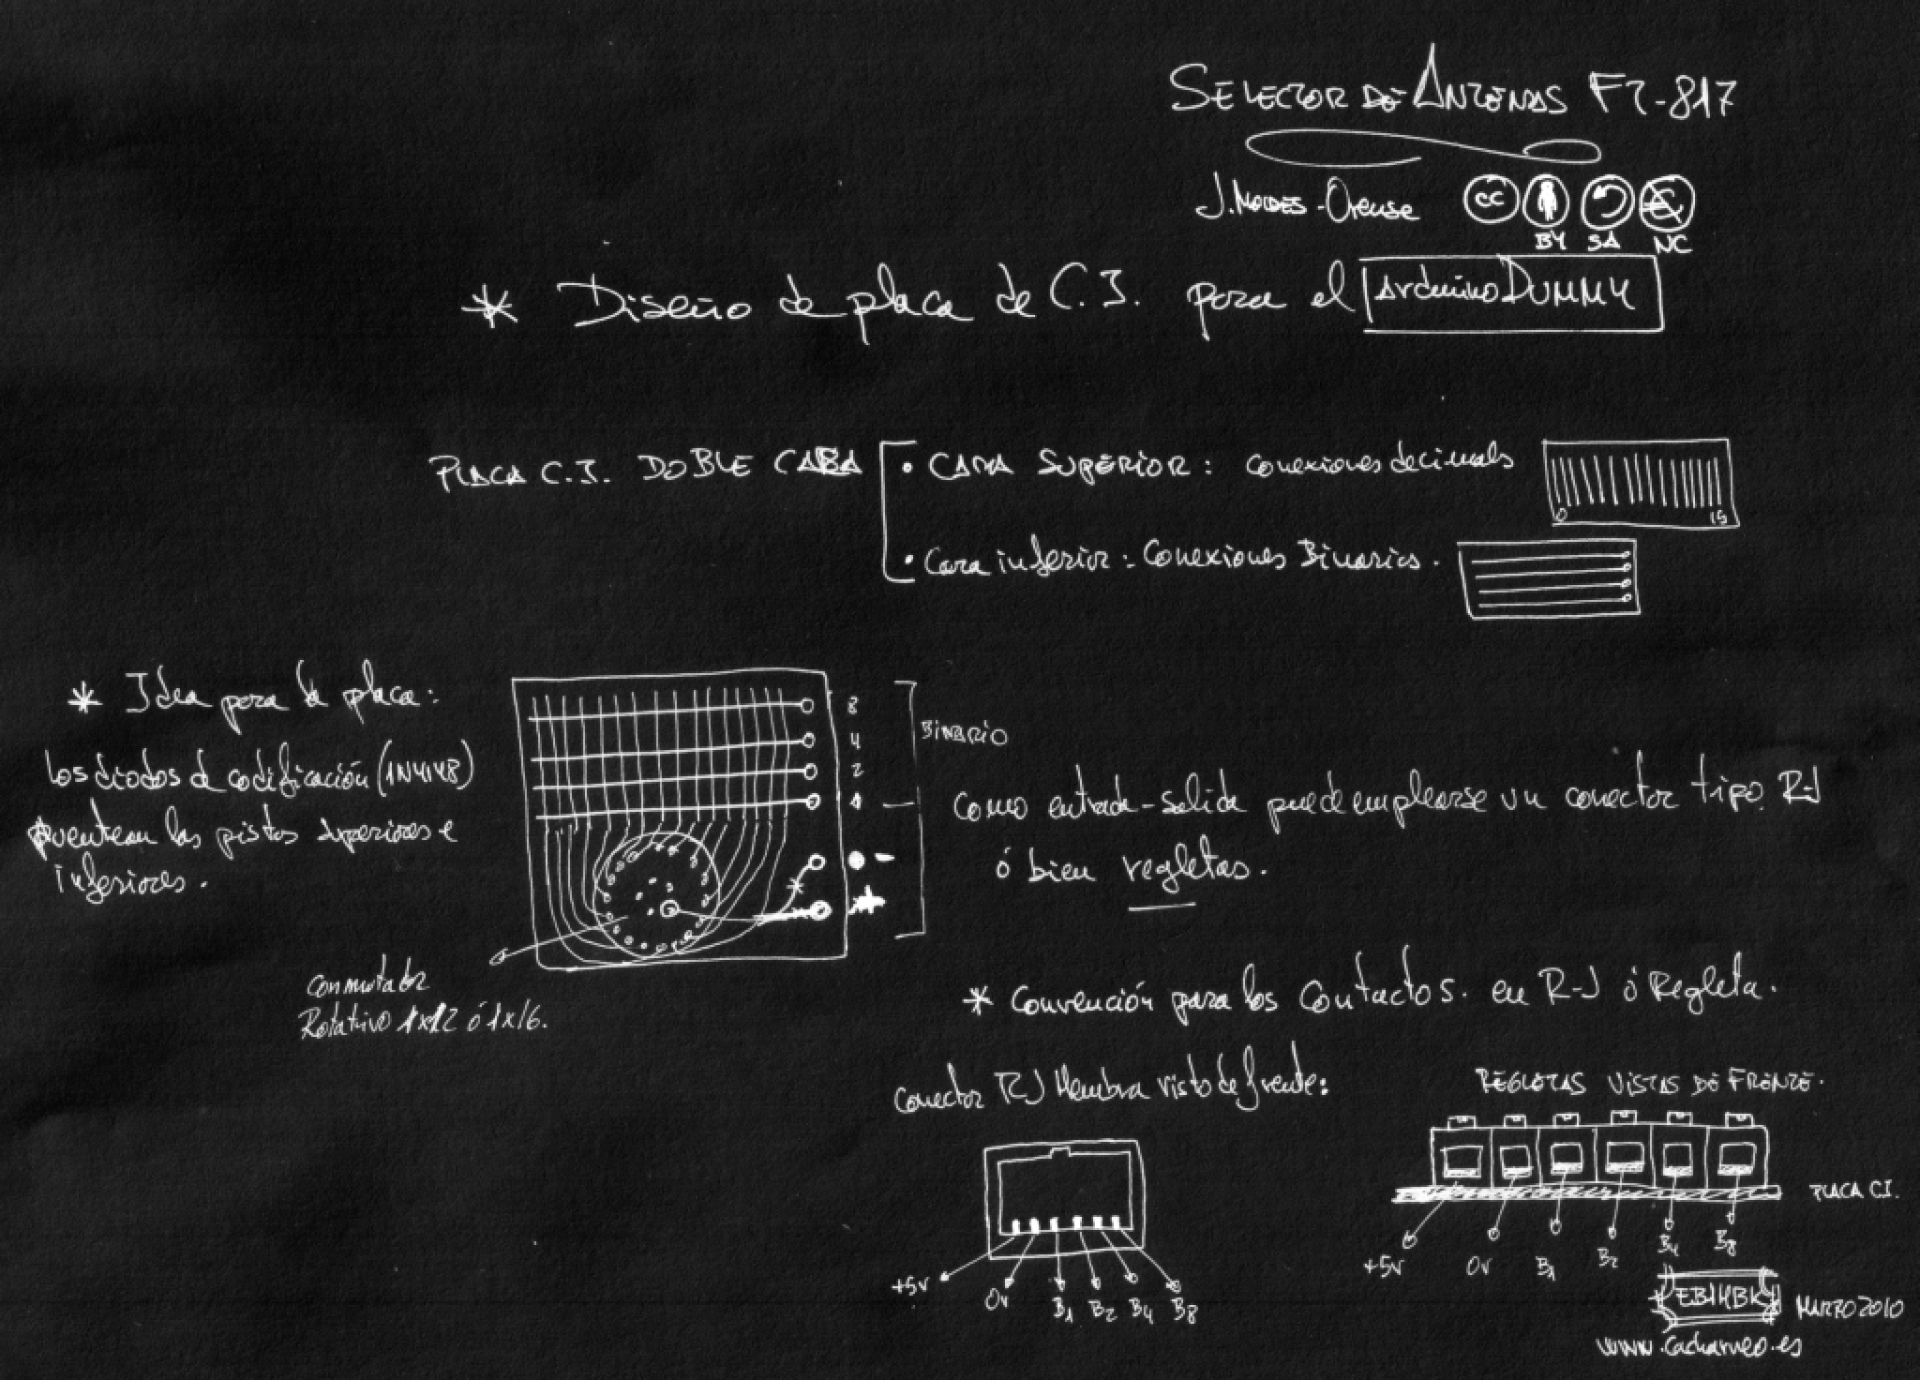 SELECTOR DE ANTENAS FT-817
J. Moldes - Orense
cc
BY SA NC
* Diseño de placa de C.I. para el ArduinoDUMMY
PLACA C.I. DOBLE CARA
• CARA SUPERIOR: Conexiones decimals
0 15
• Cara inferior: Conexiones Binarias.
* Idea para la placa:
Los diodos d codificación (1N4148)
puentean las pistas superiores e
inferiores.
8
4
2
1
Binario
-
+
Conmutador
Rotativo 1x12 ó 1x16.
Como entrada-salida puede emplearse un conector tipo R-J
ó bien regletas.
* Convención para los Contactos. en R-J ó Regleta.
Conector RJ Hembra visto de frente:
+5v 0v B1 B2 B4 B8
REGLETAS VISTAS DE FRENTE.
PLACA C.I.
+5v 0v B1 B2 B4 B8
MARZO 2010
www.cacharreo.es